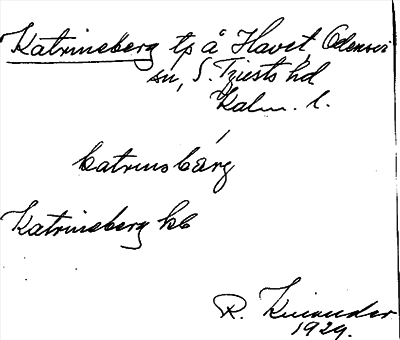 Katrineberg tp å Havet, Odensvi
sn, S. Tjusts hd
Kalm. l.
katrinsbärg
Katrineberg kb
R.
1929.